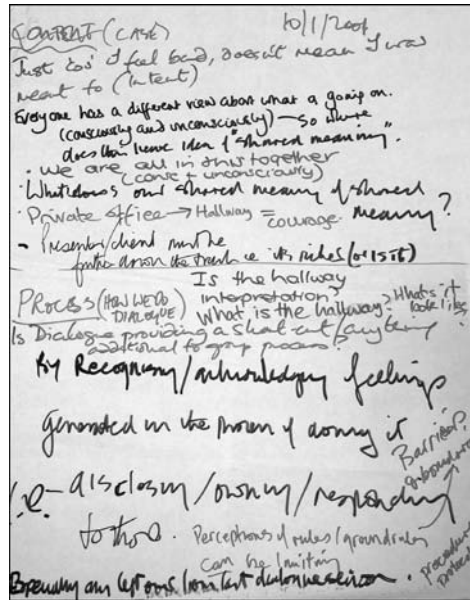 CONTENT (CASE) 10/1/2001
Just cos' I feel bad, doesn't mean I was
meant to (intent)
Everyone has a different view about what is going on.
(consciously and unconsciously) — so where
does this leave idea of "shared meaning".
· We are all in this together
(consc + unconsciously)
· What does our shared meaning of shared
meaning?
· Private office → Hallway = courage.
- Presenter/client must be
further down the track i.e. its riches (or is it)
Is the hallway
interpretation?
PROCESS (HOW WE DO
DIALOGUE)
What is the hallway? What's it
look like?
Is Dialogue providing a short cut/anything
additional to group process?
By Recognising/acknowledging feelings
generated in the process of doing it
i.e. disclosing/owning/responding
to those.
Perceptions of rules/groundrules
can be limiting
Barriers?
Especially any left over from last dialogue session.
procedure